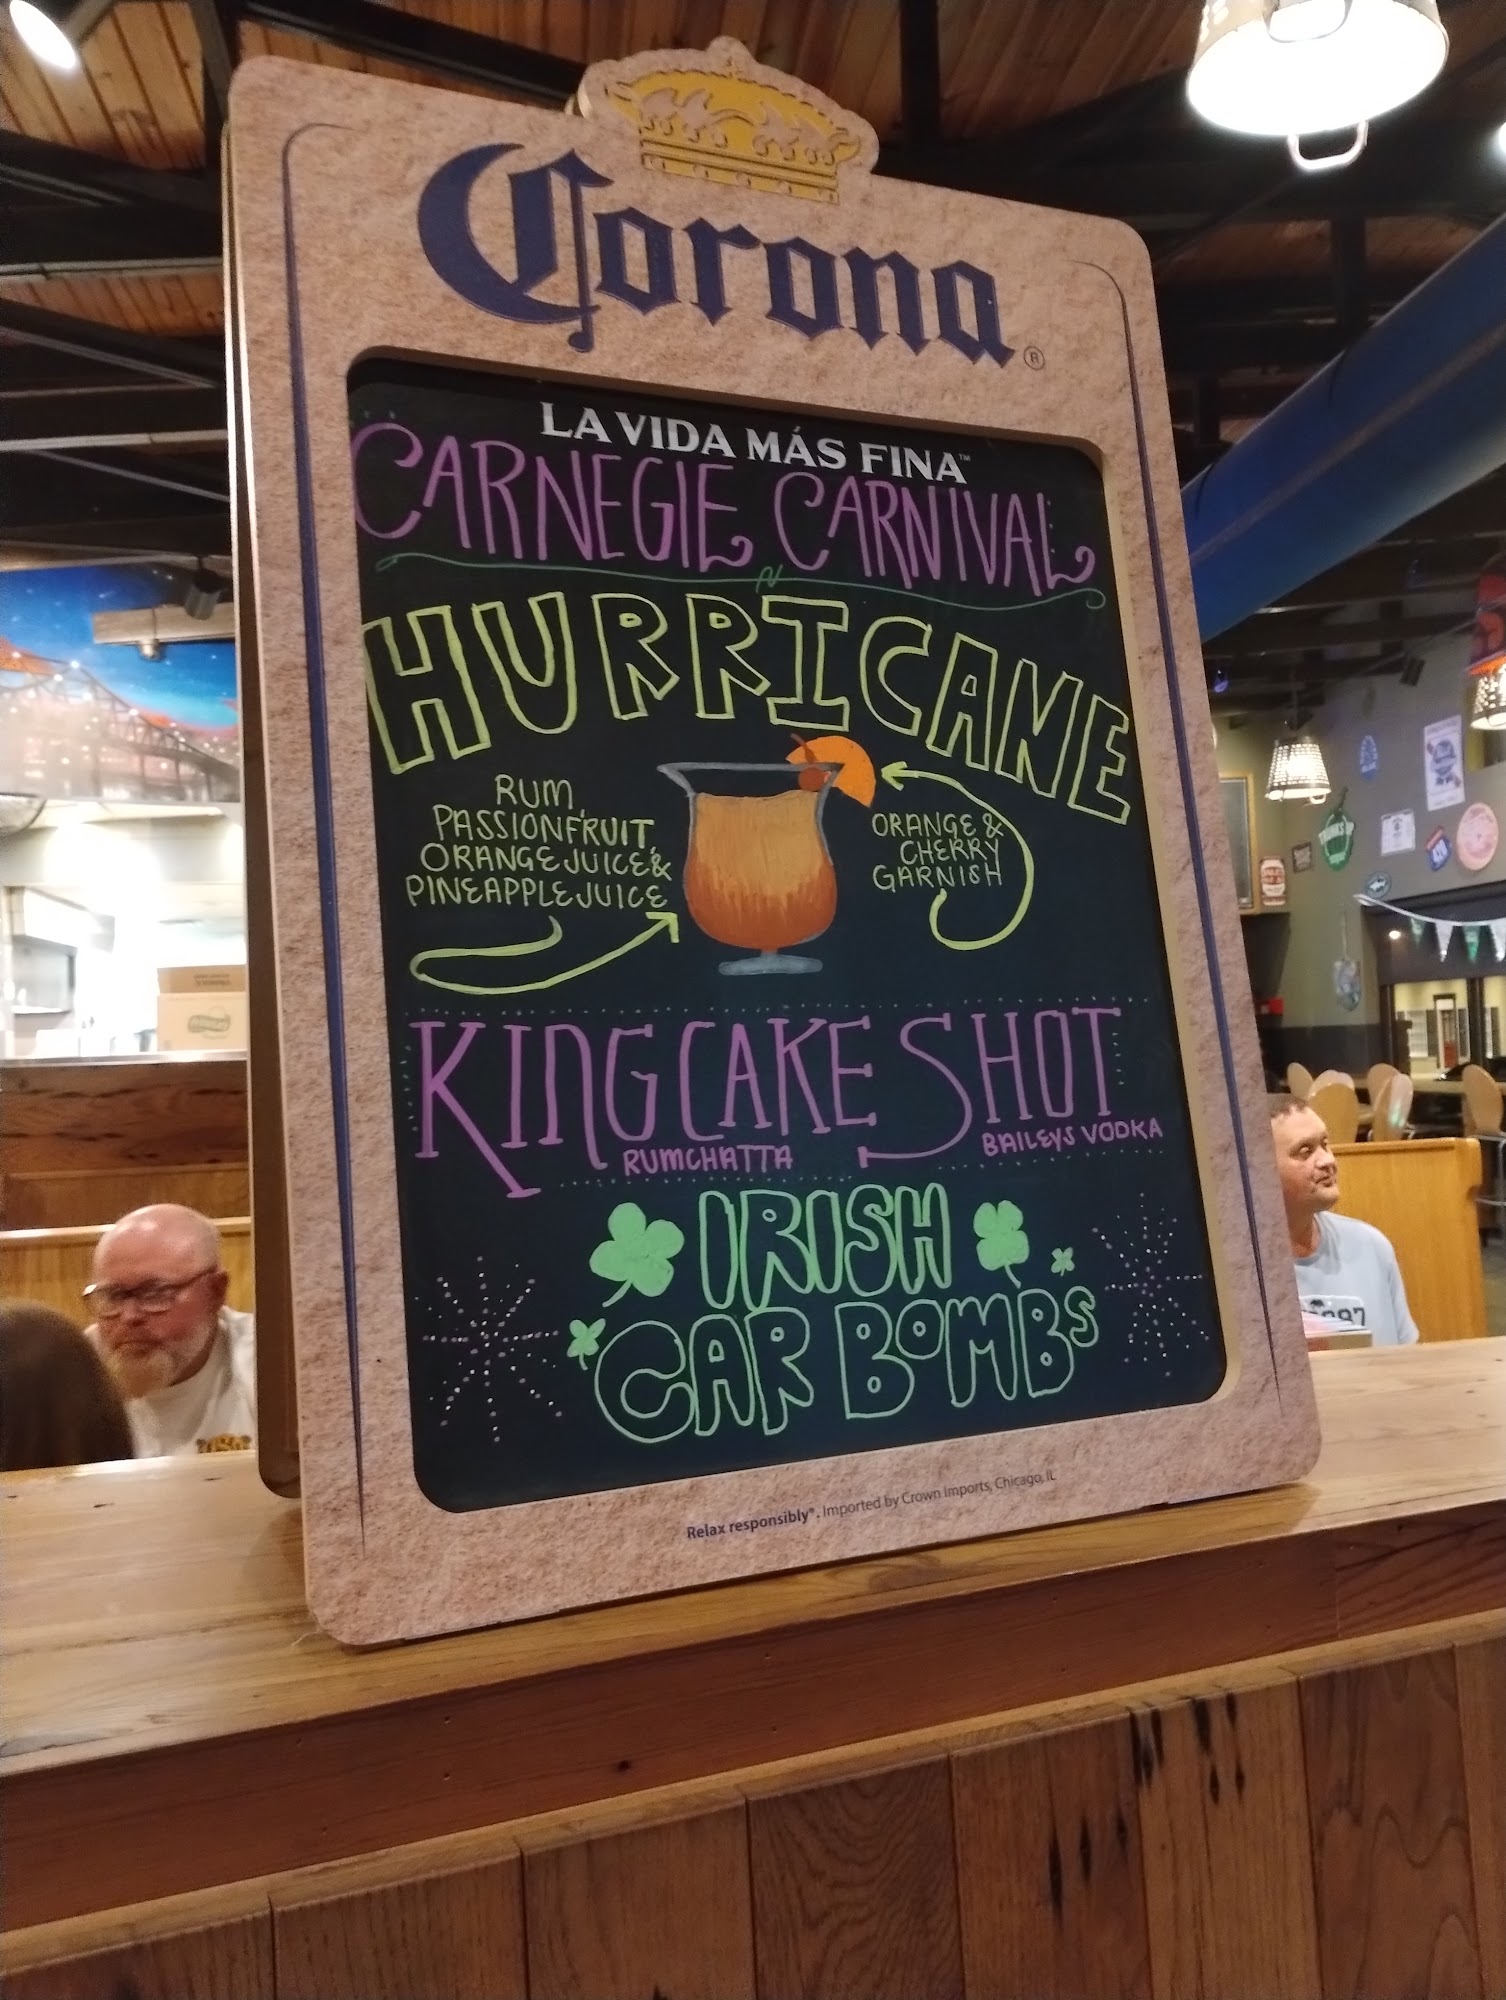 Corona®
LA VIDA MÁS FINA™
CARNEGIE CARNIVAL
HURRICANE
RUM,
PASSIONFRUIT,
ORANGE JUICE &
PINEAPPLE JUICE
ORANGE &
CHERRY
GARNISH
KING CAKE SHOT
RUMCHATTA
BAILEYS VODKA
IRISH
CAR BOMBS
Relax responsibly®. Imported by Crown Imports, Chicago, IL